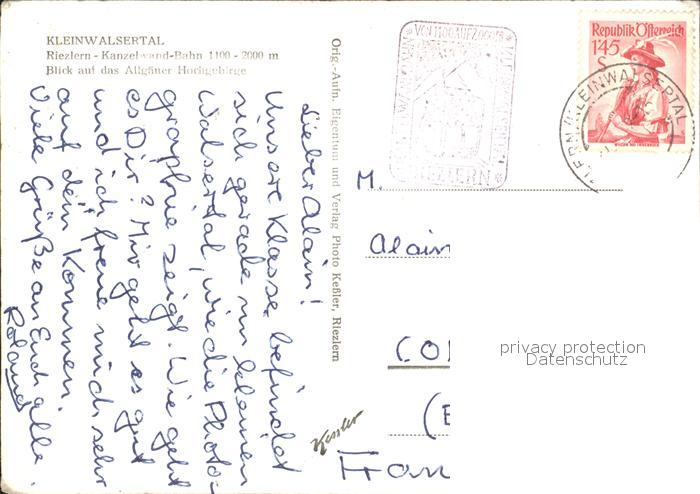 KLEINWALSERTAL
Riezlern - Kanzelwand-Bahn 1100 - 2000 m
Blick auf das Allgäuer Hochgebirge
Lieber Alain!
Unsere Klasse befindet
sich gerade im kleinen
Walsertal, wie die Photo-
graphie zeigt. Wie geht
es Dir? Mir geht es gut
und ich freue mich sehr
auf dein Kommen.
Viele Grüße an Euch alle.
Roland
Orig.-Aufn. Eigentum und Verlag Photo Keßler, Riezlern
Kessler
VON 1100 AUF 2000 m
RIEZLERN
Republik Österreich
1.45
S
KLEINWALSERTAL
M.
Alain
CO
(
Fran
privacy protection
Datenschutz